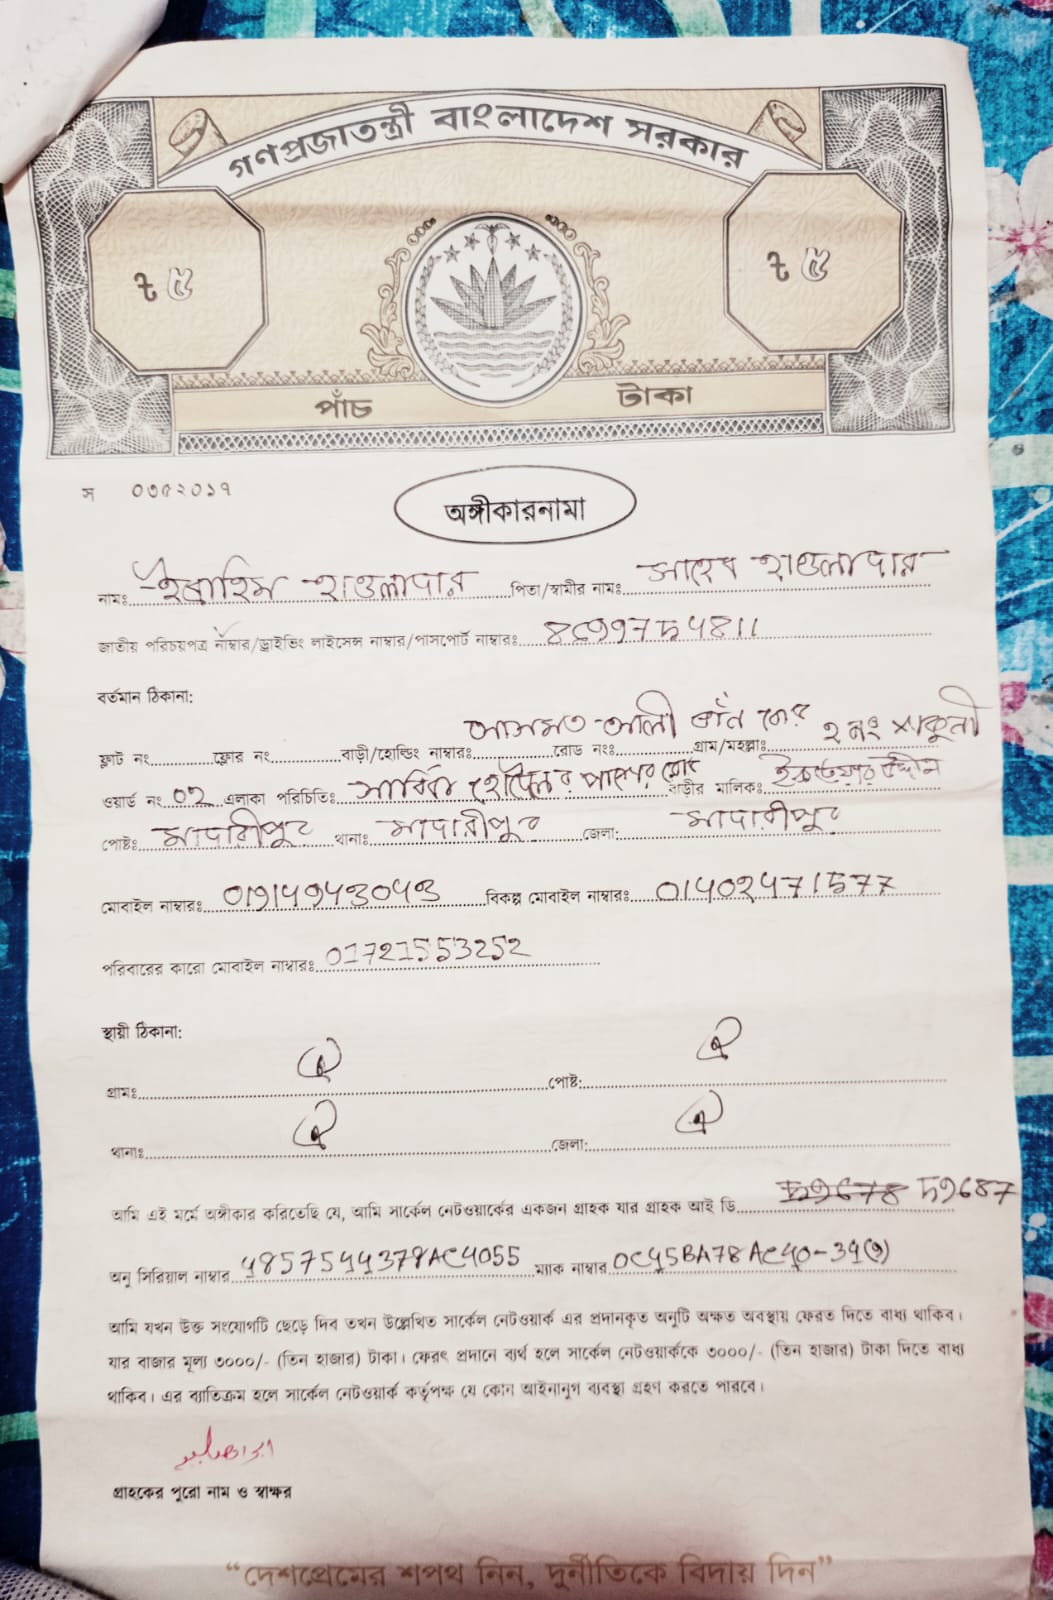 গণপ্রজাতন্ত্রী বাংলাদেশ সরকার
৳ ৫ ৳ ৫
পাঁচ টাকা
স ০৩৫২০১৭
অঙ্গীকারনামা
নামঃ ইব্রাহিম হাওলাদার পিতা/স্বামীর নামঃ সাহেব হাওলাদার
জাতীয় পরিচয়পত্র নাম্বার/ড্রাইভিং লাইসেন্স নাম্বার/পাসপোর্ট নাম্বারঃ
বর্তমান ঠিকানা:
ফ্লাট নং ফ্লোর নং বাড়ী/হোল্ডিং নাম্বারঃ আসমত আলী খাঁন রোড রোড নংঃ গ্রাম/মহল্লাঃ ২ নং শকুনী
ওয়ার্ড নং ০২ এলাকা পরিচিতিঃ সার্বিক হোটেলের পাশের রোড বাড়ীর মালিকঃ উদ্দীন
পোষ্টঃ মাদারীপুর থানাঃ মাদারীপুর জেলা: মাদারীপুর
মোবাইল নাম্বারঃ বিকল্প মোবাইল নাম্বারঃ
পরিবারের কারো মোবাইল নাম্বারঃ 01721553252
স্থায়ী ঠিকানা:
গ্রামঃ ঐ পোষ্ট: ঐ
থানাঃ ঐ জেলা: ঐ
আমি এই মর্মে অঙ্গীকার করিতেছি যে, আমি সার্কেল নেটওয়ার্কের একজন গ্রাহক যার গ্রাহক আই ডি
অনু সিরিয়াল নাম্বার 48575444378AC4055 ম্যাক নাম্বার
আমি যখন উক্ত সংযোগটি ছেড়ে দিব তখন উল্লেখিত সার্কেল নেটওয়ার্ক এর প্রদানকৃত অনুটি অক্ষত অবস্থায় ফেরত দিতে বাধ্য থাকিব।
যার বাজার মূল্য ৩০০০/- (তিন হাজার) টাকা। ফেরৎ প্রদানে ব্যর্থ হলে সার্কেল নেটওয়ার্ককে ৩০০০/- (তিন হাজার) টাকা দিতে বাধ্য
থাকিব। এর ব্যাতিক্রম হলে সার্কেল নেটওয়ার্ক কর্তৃপক্ষ যে কোন আইনানুগ ব্যবস্থা গ্রহণ করতে পারবে।
গ্রাহকের পুরো নাম ও স্বাক্ষর
“দেশপ্রেমের শপথ নিন, দুর্নীতিকে বিদায় দিন”